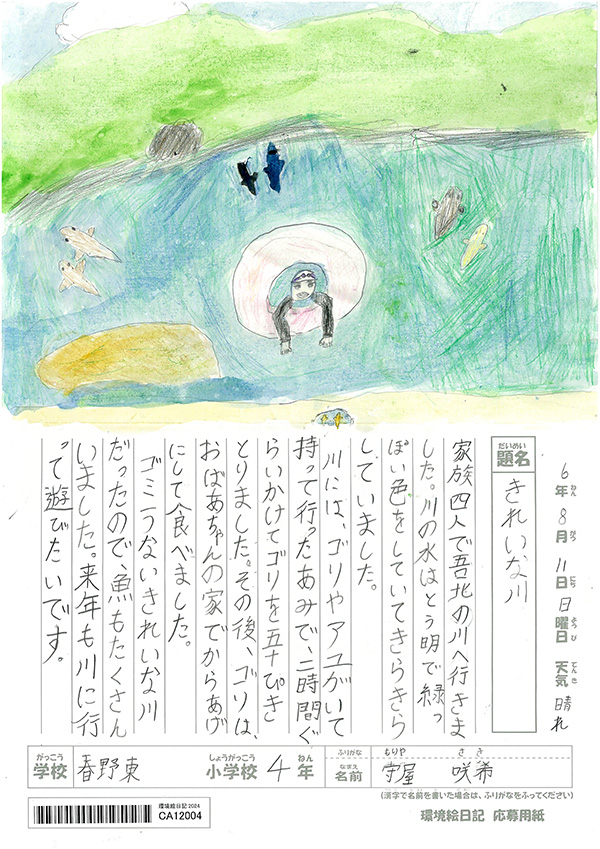 6年 8月 11日 日曜日 天気 晴れ
ねん がつ にち ようび てんき
だいめい
題名
きれいな川
家族四人で吾北の川へ行きま
した。川の水はとう明で緑っ
ぽい色をしていてきらきら
していました。
川には、ゴリやアユがいて
持って行ったあみで、二時間ぐ
らいかけてゴリを五十ぴき
とりました。その後、ゴリは、
おばあちゃんの家でからあげ
にして食べました。
ゴミ一つないきれいな川
だったので、魚もたくさん
いました。来年も川に行
って遊びたいです。
がっこう しょうがっこう ねん ふりがな もりや さき
学校 春野東 小学校 4年 なまえ 名前 守屋 咲希
(漢字で名前を書いた場合は、ふりがなをふってください)
環境絵日記 2024
CA12004
環境絵日記 応募用紙